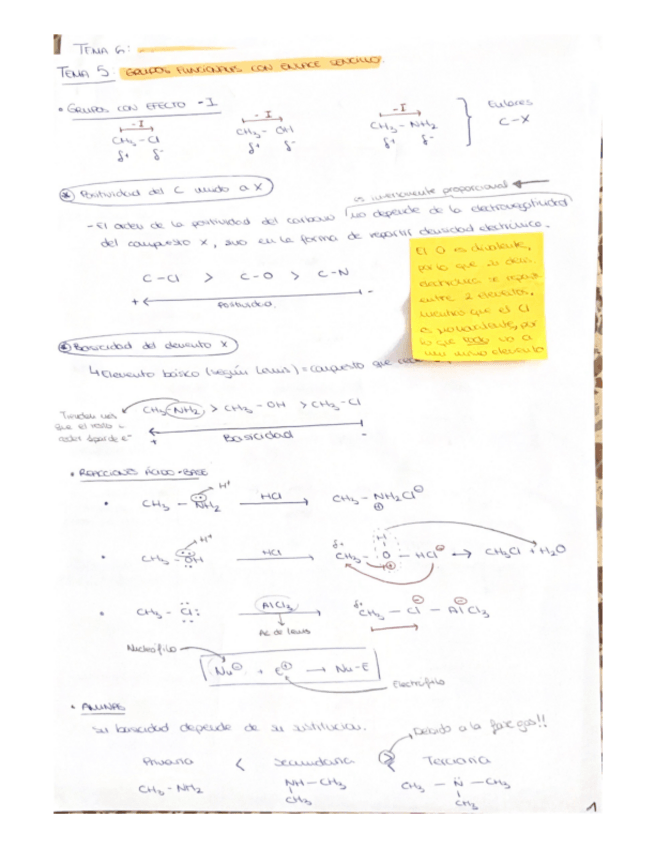 TEMA 6:
TEMA 5: GRUPOS FUNCIONALES CON ENLACE SENCILLO.
• GRUPOS CON EFECTO -I
-I -I -I
CH3 - Cl CH3 - OH CH3 - NH2
δ+ δ- δ+ δ- δ+ δ-
Enlaces
C-X
Positividad del C unido a X
es inversamente proporcional
- El orden de la positividad del carbono no depende de la electronegatividad
del compuesto X, sino en la forma de repartir densidad electrónica.
C-Cl > C-O > C-N
+ Positividad. -
El O es divalente,
por lo que su dens.
electrónica se reparte
entre 2 elementos,
mientras que el Cl
es monovalente, por
lo que todo va a
un mismo elemento
Basicidad del elemento X
↳ Elemento básico (según Lewis) = compuesto que
CH3-NH2 > CH3-OH > CH3-Cl
Tienden más
que el resto a
ceder pares de e-
+ Basicidad -
• REACCIONES ÁCIDO-BASE
• CH3 - NH2 H+ HCl → CH3 - NH2Cl⊖
⊕
• CH3 - OH H+ HCl → δ+ CH3 - O - HCl⊖ → CH3Cl + H2O
H
⊕
• CH3 - Cl: AlCl3 → δ+ CH3 - Cl - AlCl3
⊖ ⊖
Ac de Lewis
Nucleófilo
Nu⊖ + E⊕ → Nu-E
Electrófilo
• AMINAS
Su basicidad depende de su sustitución.
Debido a la fase gas!!
Primaria < Secundaria > Terciaria
CH3-NH2 NH-CH3 CH3 - N - CH3
CH3 CH3
1